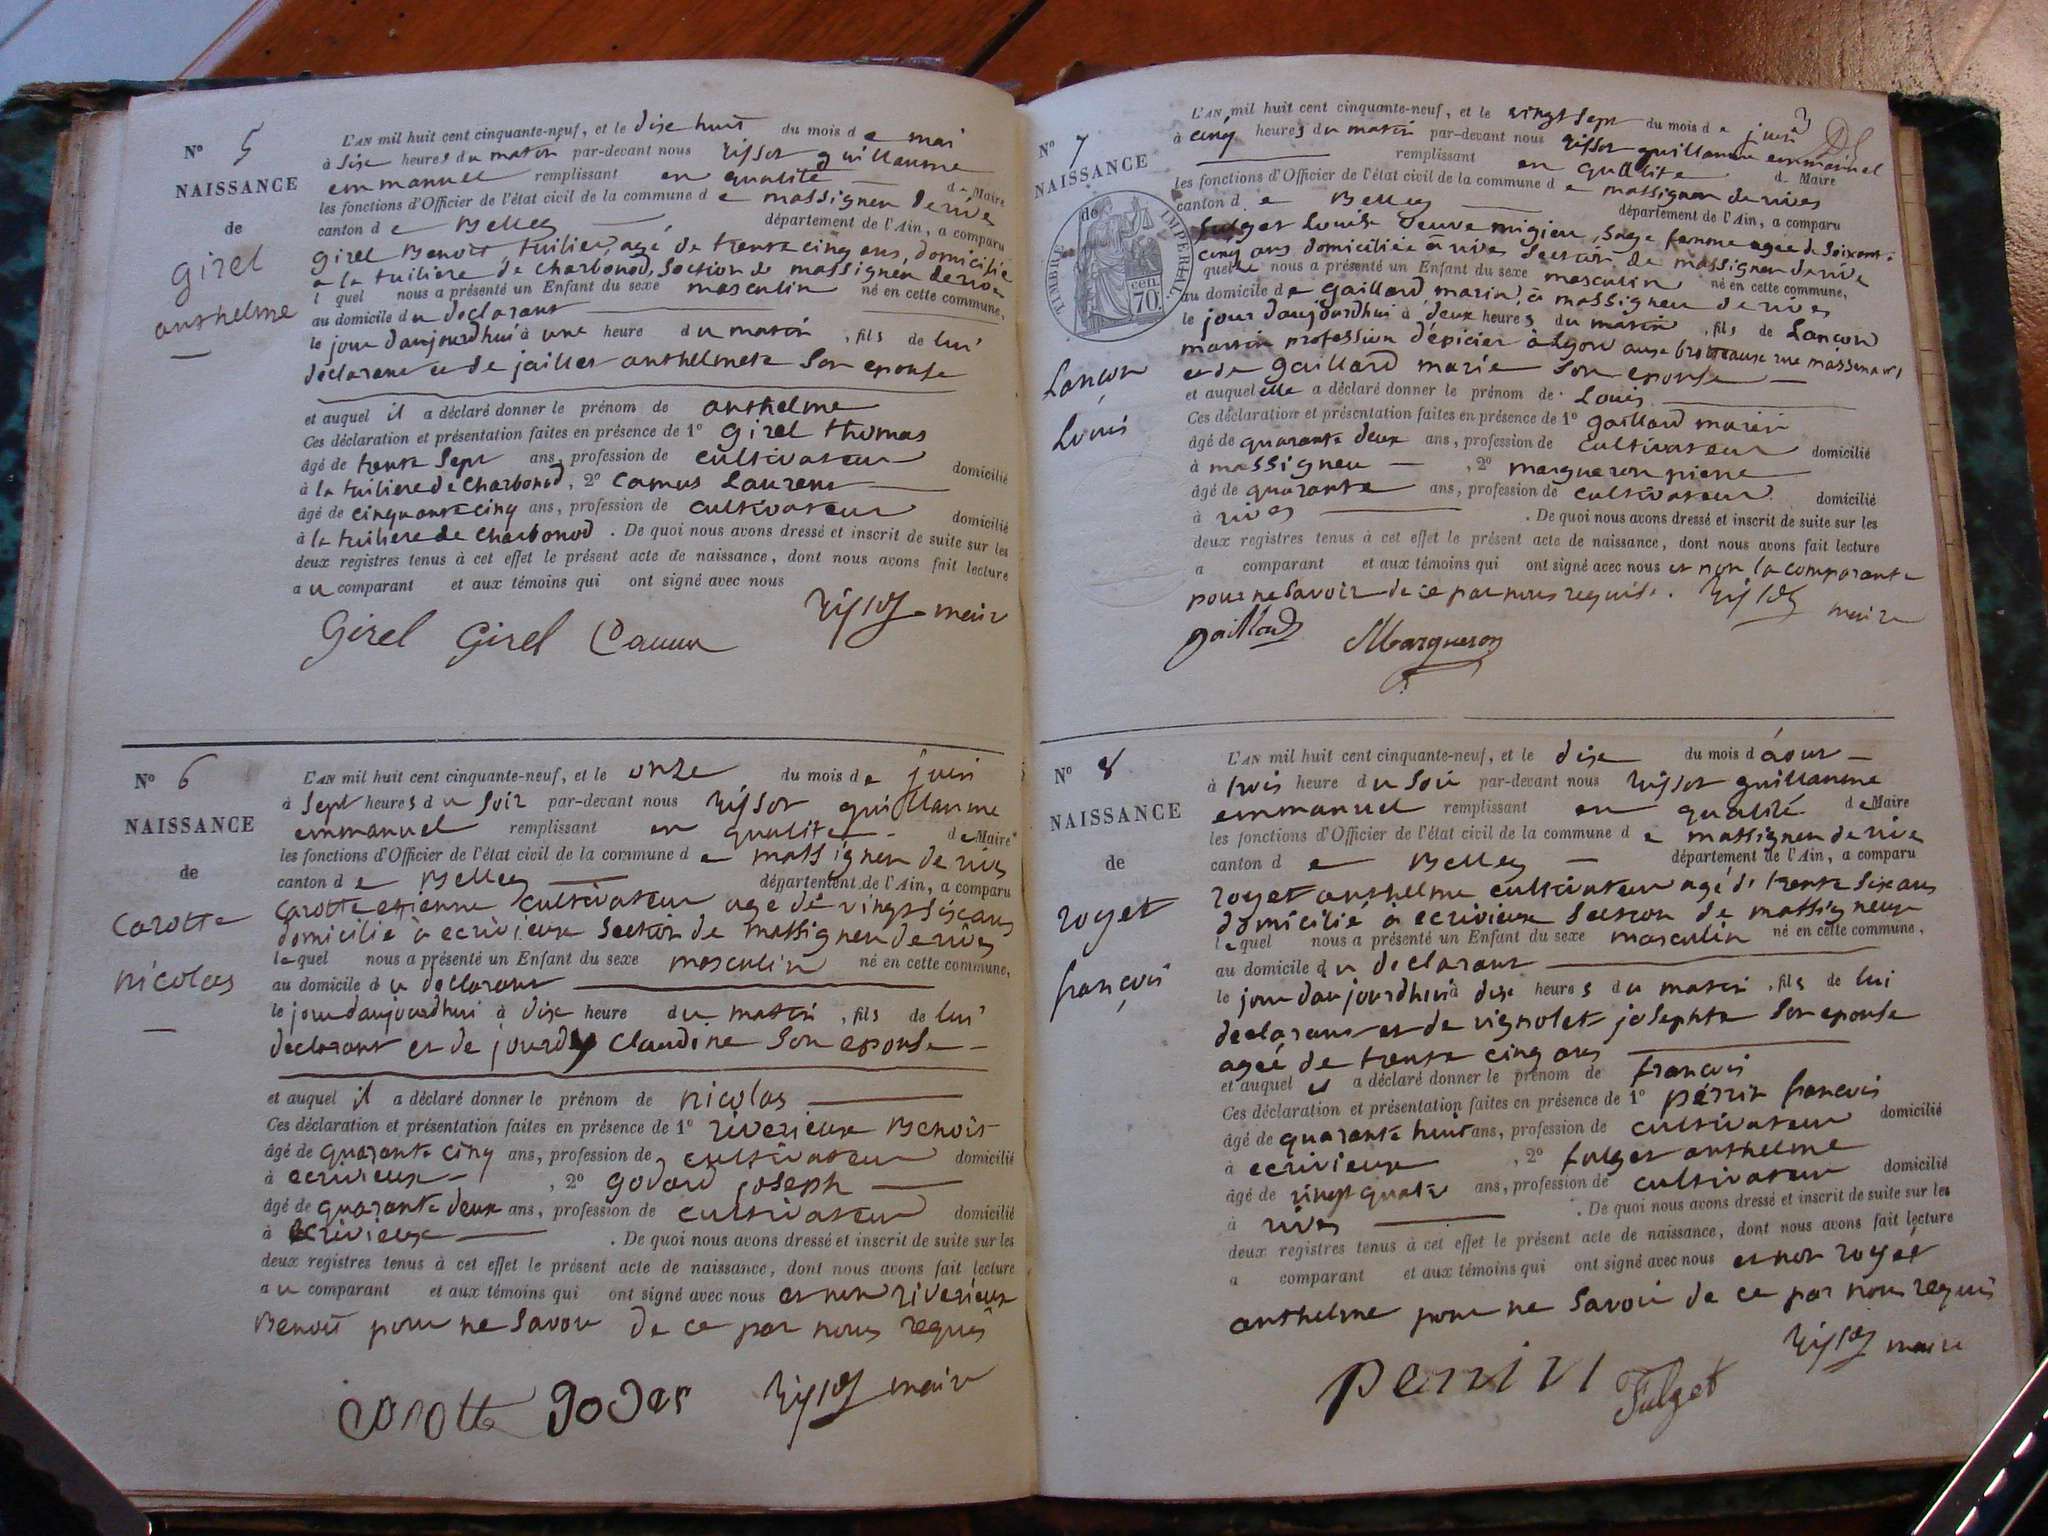 N° 5
NAISSANCE
de
Girel
anthelme
L'AN mil huit cent cinquante-neuf, et le dixe huit du mois de mai
à sixe heures du matin par-devant nous Rissot guillaume
emmanuel remplissant en qualité de Maire
les fonctions d'Officier de l'état civil de la commune de massigneu de rive
canton de Belley département de l'Ain, a comparu
Girel Benoit, tuilier, agé de trente cinq ans, domicilié
a la tuiliere de Charbonod, section de massigneu de rive
lequel nous a présenté un Enfant du sexe masculin né en cette commune,
au domicile du declarant
le jour daujourdhui à une heure du matin, fils de lui
declarant et de jailler anthelmete son epouse
et auquel il a déclaré donner le prénom de anthelme
Ces déclaration et présentation faites en présence de 1° Girel thomas
âgé de trente sept ans, profession de cultivateur domicilié
à la tuiliere de Charbonod, 2° Camus Laurent
âgé de cinquante cinq ans, profession de cultivateur domicilié
à la tuiliere de Charbonod. De quoi nous avons dressé et inscrit de suite sur les
deux registres tenus à cet effet le présent acte de naissance, dont nous avons fait lecture
au comparant et aux témoins qui ont signé avec nous
Girel Girel Camus Rissot maire
N° 6
NAISSANCE
de
Carotte
nicolas
L'AN mil huit cent cinquante-neuf, et le onze du mois de juin
à sept heures du soir par-devant nous Rissot guillaume
emmanuel remplissant en qualité de Maire
les fonctions d'Officier de l'état civil de la commune de massigneu de rives
canton de Belley département de l'Ain, a comparu
Carotte etienne cultivateur agé de vingt sixe ans
domicilié à ecrivieux section de massigneu de rives
lequel nous a présenté un Enfant du sexe masculin né en cette commune,
au domicile du declarant
le jour daujourdhui à dixe heure du matin, fils de lui
declarant et de jourdy Claudine son epouse
et auquel il a déclaré donner le prénom de nicolas
Ces déclaration et présentation faites en présence de 1° riverieux Benoit
âgé de quarante cinq ans, profession de cultivateur domicilié
à ecrivieux, 2° godard joseph
âgé de quarante deux ans, profession de cultivateur domicilié
à ecrivieux. De quoi nous avons dressé et inscrit de suite sur les
deux registres tenus à cet effet le présent acte de naissance, dont nous avons fait lecture
au comparant et aux témoins qui ont signé avec nous et non riverieux
Benoit pour ne savoir de ce par nous requis
Carotte Rissot maire
N° 7
NAISSANCE
de
TIMBRE IMPERIAL
70 cen.
Lançon
Louis
L'AN mil huit cent cinquante-neuf, et le vingt sept du mois de juin
à cinq heures du matin par-devant nous Rissot guillaume emmanuel
remplissant en qualité de Maire
les fonctions d'Officier de l'état civil de la commune de massigneu de rives
canton de Belley département de l'Ain, a comparu
Fulget Louise veuve migieu, sage femme agée de soixante
cinq ans domiciliée à rive section de massigneu de rive
quelle nous a présenté un Enfant du sexe masculin né en cette commune,
au domicile de gaillard marin, à massigneu de rives
le jour daujourdhui à deux heures du matin, fils de Lançon
martin profession d'épicier à Lyon auxe brotteauxe rue massena
et de gaillard marie son epouse
et auquel elle a déclaré donner le prénom de Louis
Ces déclaration et présentation faites en présence de 1° gaillard marin
âgé de quarante deux ans, profession de cultivateur domicilié
à massigneu, 2° margueron pierre
âgé de quarante ans, profession de cultivateur domicilié
à rives. De quoi nous avons dressé et inscrit de suite sur les
deux registres tenus à cet effet le présent acte de naissance, dont nous avons fait lecture
a comparant et aux témoins qui ont signé avec nous et non la comparante
pour ne savoir de ce par nous requise. Rissot maire
gaillard Margueron
N° 8
NAISSANCE
de
royet
françois
L'AN mil huit cent cinquante-neuf, et le dixe du mois d'aout
à trois heure du soir par-devant nous Rissot guillaume
emmanuel remplissant en qualité de Maire
les fonctions d'Officier de l'état civil de la commune de massigneu de rive
canton de Belley département de l'Ain, a comparu
royet anthelme cultivateur agé de trente sixe ans
domicilié à ecrivieux section de massigneux
lequel nous a présenté un Enfant du sexe masculin né en cette commune,
au domicile du declarant
le jour daujourdhui à dixe heures du matin, fils de lui
declarant et de vignolet josephte son epouse
agée de trente cinq ans
et auquel il a déclaré donner le prénom de francois
Ces déclaration et présentation faites en présence de 1° perrin francois
âgé de quarante huit ans, profession de cultivateur domicilié
à ecrivieux, 2° fulget anthelme
âgé de vingt quatre ans, profession de cultivateur domicilié
à rives. De quoi nous avons dressé et inscrit de suite sur les
deux registres tenus à cet effet le présent acte de naissance, dont nous avons fait lecture
a comparant et aux témoins qui ont signé avec nous et non royet
anthelme pour ne savoir de ce par nous requis
Rissot maire
perrin Fulget